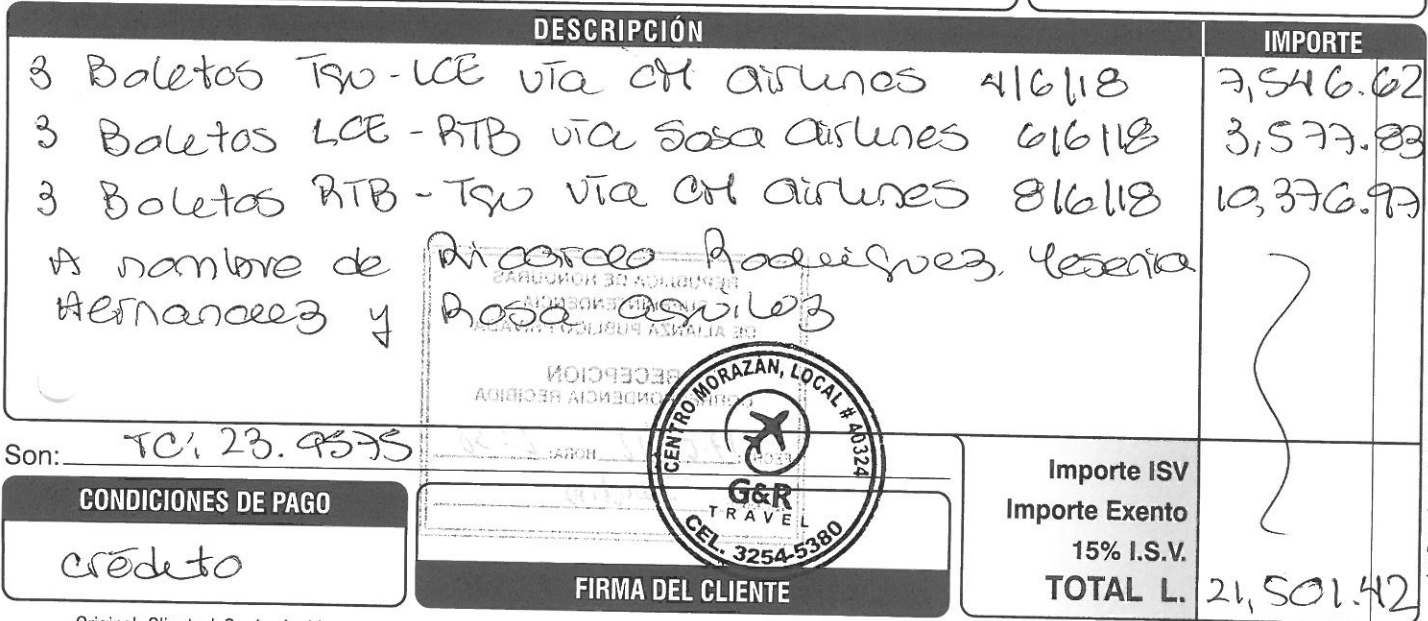 DESCRIPCIÓN IMPORTE
3 Boletos TGU-LCE vía CM airlines 4/6/18 7,546.62
3 Boletos LCE-RTB vía Sosa airlines 6/6/18 3,577.83
3 Boletos RTB-TGU vía CM airlines 8/6/18 10,376.97
A nombre de Ricardo Rodriguez, Yesenia
Hernandez y Rosa
REPUBLICA DE HONDURAS
SUPERINTENDENCIA
DE ALIANZA PUBLICO PRIVADA
RECEPCION
CORRESPONDENCIA RECIBIDA
FECHA: HORA:
CENTRO MORAZÁN, LOCAL # 40324
G&R
TRAVEL
CEL. 3254-5380
Son: TC: 23.9575
CONDICIONES DE PAGO
crédito
FIRMA DEL CLIENTE
Importe ISV
Importe Exento
15% I.S.V.
TOTAL L. 21,501.42